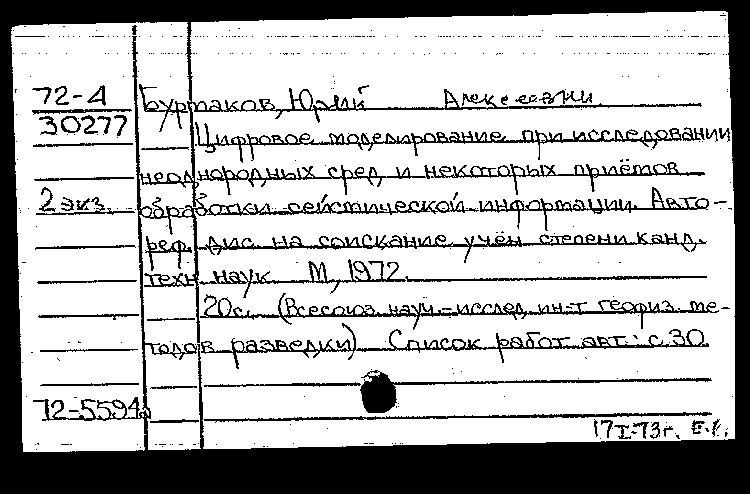 72-4
30277
Бурмаков, Юрий Алексеевич
Цифровое моделирование при исследовании
неоднородных сред и некоторых приёмов
2 экз.
обработки сейсмической информации. Авто-
реф. дис. на соискание учен степени канд.
техн наук М, 1972.
20с. (Всесоюз науч.-исслед ин-т геофиз ме-
тодов разведки) Список работ авт.: с 30.
72-5594а
17 I-73г.